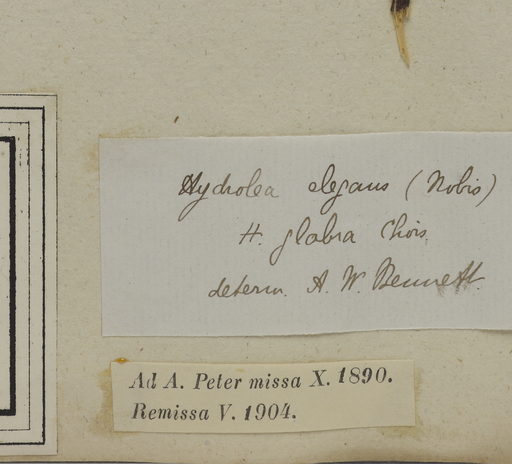 Hydrolea elegans (Nobis)
H. glabra Chois.
determ. A. W. Bennett.
Ad A. Peter missa X. 1890.
Remissa V. 1904.